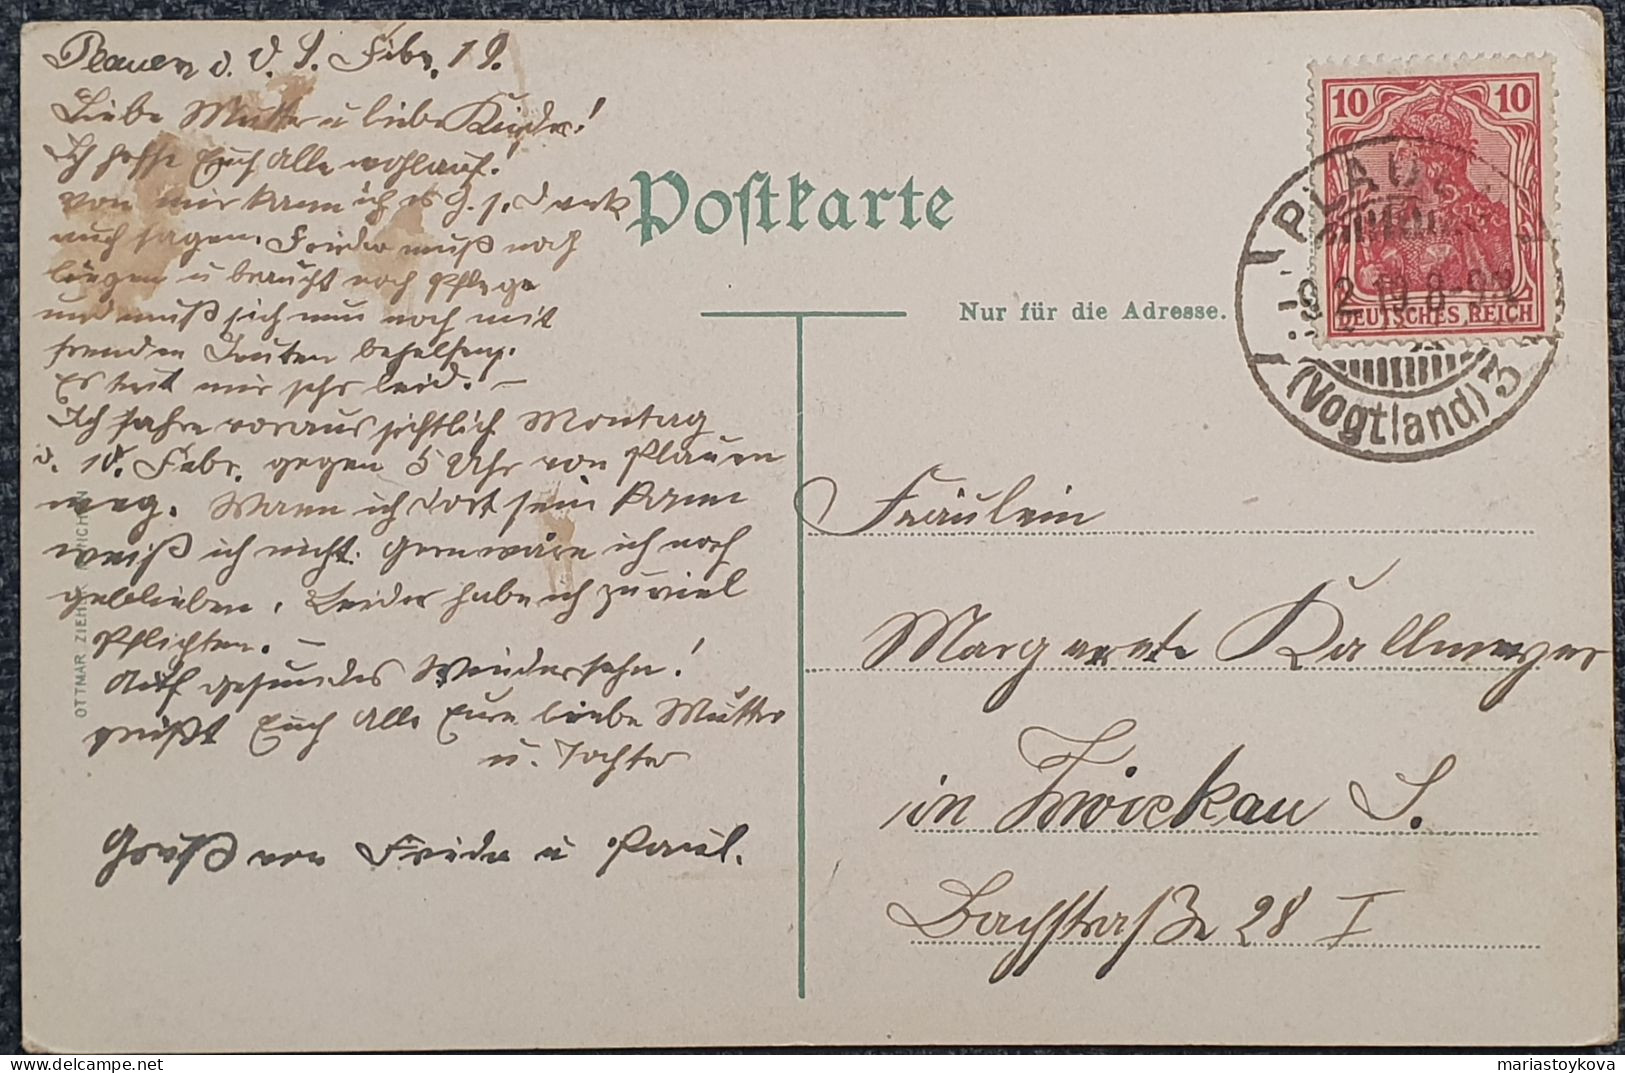 Plauen d. 9. Febr. 19.
Liebe Mutter u liebe Kinder!
Ich hoffe Euch Alle wohlauf.
von mir kann ich es G. s. Dank
auch sagen. Frieda muß noch
liegen u braucht noch Pflege
und muß sich nun noch mit
fremden Leuten behelfen.
Es tut mir sehr leid. –
Ich fahre voraussichtlich Montag
d. 10. Febr. gegen 5 Uhr von Plauen
weg. Wann ich dort sein kann
weiß ich nicht. Gern wäre ich noch
geblieben. Leider habe ich zu viel
Pflichten. –
Auf gesundes Wiedersehn!
grüßt Euch Alle Eure liebe Mutter
u. Tochter
Gruß von Frieda u Paul.
OTTMAR ZIEHER
Postkarte
Nur für die Adresse.
10 10
DEUTSCHES REICH
PLAUEN
9.2.19.8-9
(Vogtland) 3
Fräulein
Margarete Kallmeyer
in Zwickau S.
Bachstraße 28 I
mariastoykova